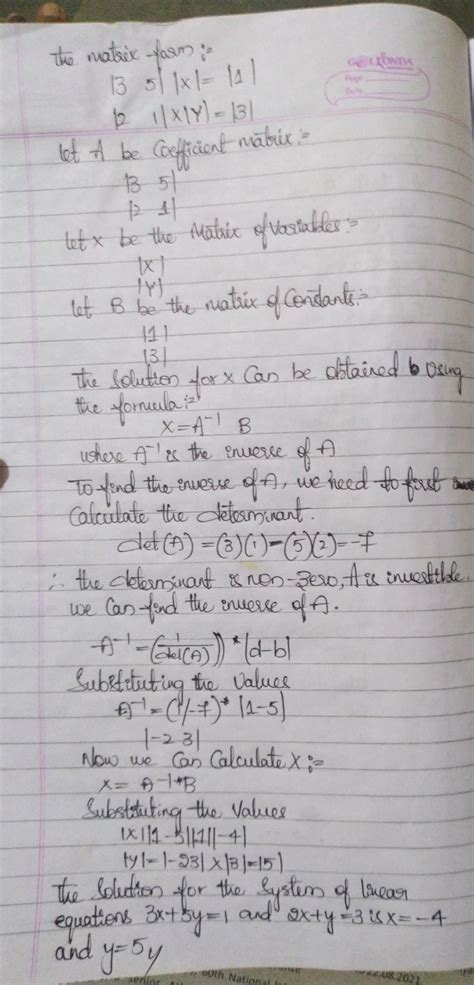 the matrix form :-
GOLCONDA
|3 5| |x| = |1|
Page
Date
|2 1| x |Y| = |3|
let A be Coefficient matrix :-
|3 5|
|2 1|
let x be the Matrix of Variables :-
|X|
|Y|
let B be the matrix of Constants :-
|1|
|3|
the solution for x Can be obtained Using
the formula :-
X = A⁻¹ B
where A⁻¹ is the inverse of A
To find the inverse of A, we need to first
Calculate the determinant.
det(A) = (3)(1) - (5)(2) = -7
∴ the determinant is non-zero, A is invertible.
we Can find the inverse of A.
A⁻¹ = (1/det(A)) * |d -b|
Substituting the values
A⁻¹ = (1/-7) * |1 -5|
|-2 3|
Now we Can Calculate X :-
X = A⁻¹ * B
Substituting the Values
|X| |1 -5| |1| |-4|
|Y| = |-2 3| X |3| = |5|
The Solution for the System of linear
equations 3x+5y=1 and 2x+y=3 is x=-4
and y=5y
senior
60th National
22.08.2021